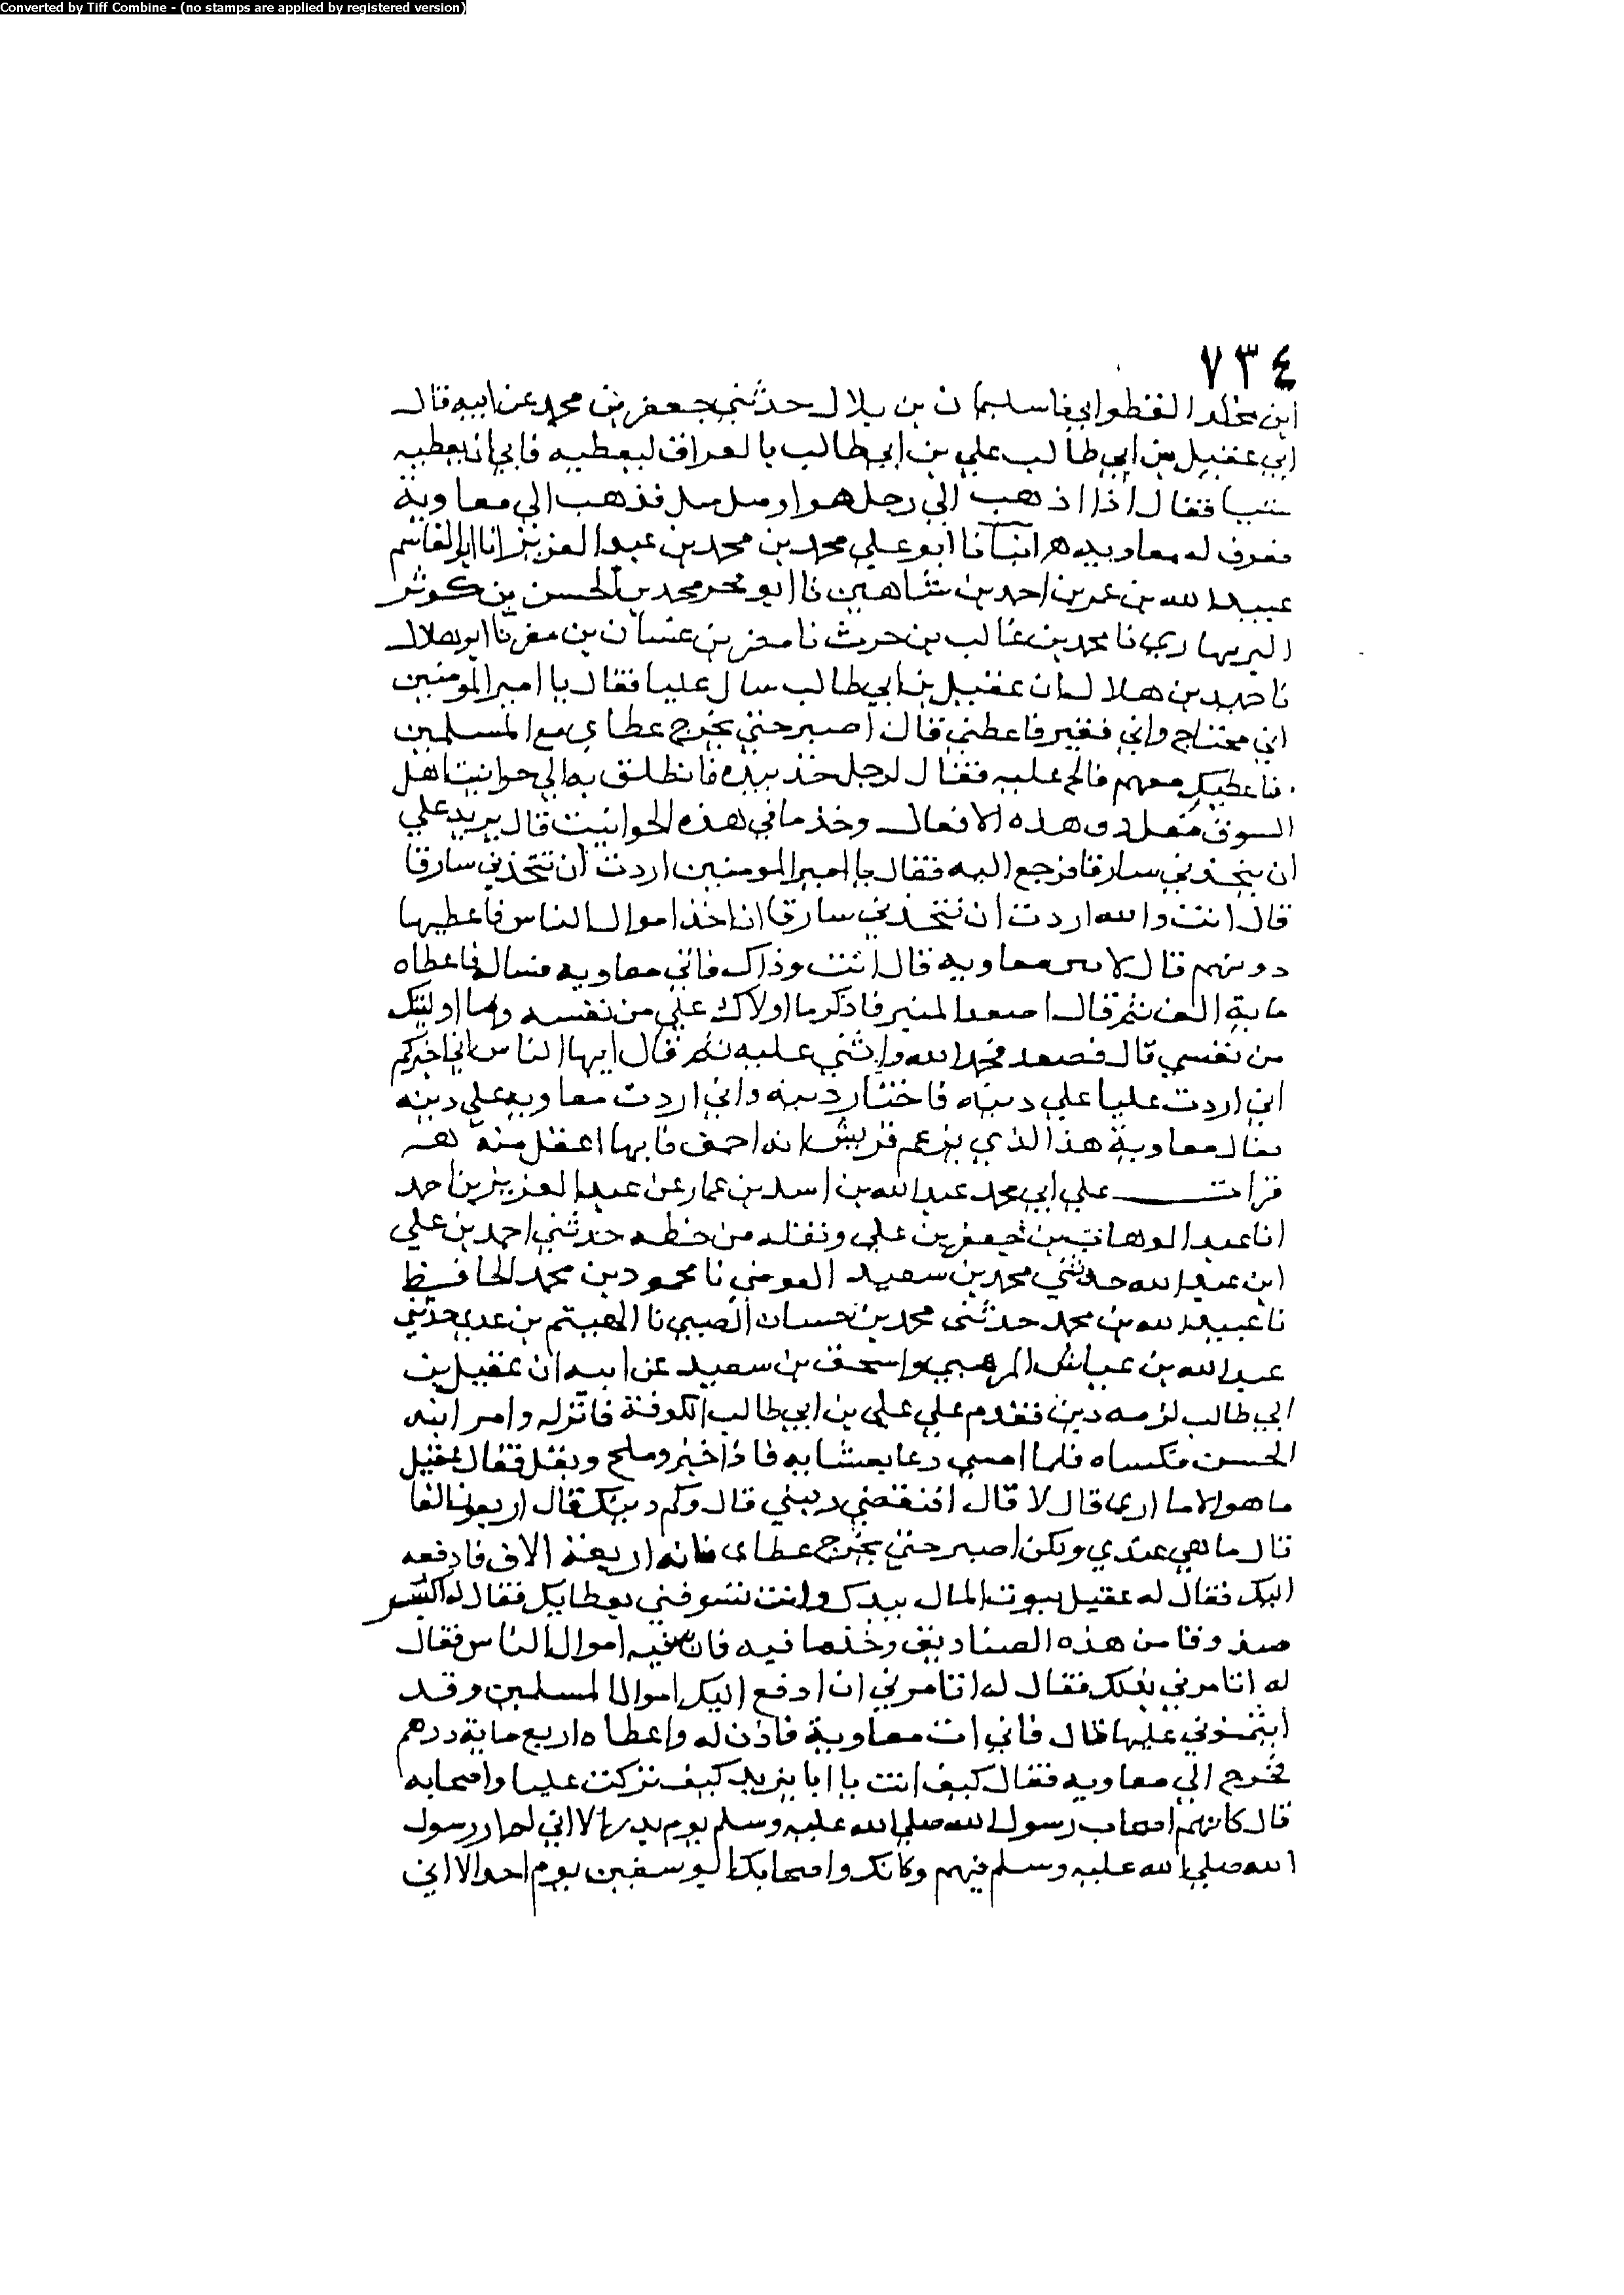 Converted by Tiff Combine - (no stamps are applied by registered version)
٧٣٤
ابن مخلد القطواني نا سليمان بن بلال حدثني جعفر بن محمد عن ابيه قال
اتي عقيل بن ابي طالب علي بن ابي طالب بالعراق ليعطيه فابي ان يعطيه
شيا فقال اذا اذهب الي رجل هو اوصل فذهب الي معاوية
فعرف له معاويه ه انبانا ابو علي محمد بن محمد بن عبد العزيز انا ابو القاسم
عبيد الله بن عمر بن احمد بن شاهين نا ابو بحر محمد بن الحسن بن كوثر
البربهاري نا محمد بن غالب بن حرث نا معن نا ابو هلال
نا حميد بن هلال ان عقيل بن ابي طالب سال عليا فقال يا امير المومنين
اني محتاج واني فقير فاعطني قال اصبر حتي يخرج عطاي مع المسلمين
فاعطيك معهم فالح عليه فقال لرجل خذ بيده فانطلق به الي حوانيت اهل
السوق فقل دق هذه الاقفال وخذ ما في هذه الحوانيت قال يريد علي
ان يتخذني سارقا فرجع اليه فقال يا امير المومنين اردت ان تتخذني سارقا
قال انت والله اردت ان تتخذني سارقا ان اخذ اموال الناس فاعطيها
دونهم قال لاتين معاويه قال انت وذاك فاتي معاويه فساله فاعطاه
ماية الف ثم قال اصعد المنبر فاذكر ما اولاك علي من نفسه وما اوليتك
من نفسي قال فصعد فحمد الله واثني عليه ثم قال ايها الناس اني اخبركم
اني اردت عليا علي دينه فاختار دينه واني اردت معاويه علي دينه
فقال معاوية هذا الذي يزعم قريش انه احمق منه
قرات علي ابي محمد عبد الله بن اسد بن عمار عن عبد العزيز بن احمد
انا عبد الوهاب بن جعفر بن علي ونقلته من خطه حدثني احمد بن علي
ابن عبد الله حدثني محمد بن سعيد العوفي نا محمود بن محمد الحافظ
نا عبيد الله بن محمد حدثني محمد بن حسان الضبي نا الهيثم بن عدي حدثني
عبد الله بن عياش المرهبي واسحق بن سعيد عن ابيه ان عقيل بن
ابي طالب لزمه دين فقدم علي علي بن ابي طالب الكوفة فانزله وامر ابنه
الحسن فكساه فلما امسي دعا بعشايه فاذا خبز وملح وبقل فقال عقيل
ما هو الا ما اري قال لا قال افتقضي ديني قال وكم دينك قال اربعون الفا
قال ما هي عندي ولكن اصبر حتي يخرج عطاي فانه اربعة الاف فادفعه
اليك فقال له عقيل بيوت المال بيدك وانت تسوفني بعطايك فقال له اكسر
صندوقا من هذه الصناديق وخذ ما فيه فان فيه اموال الناس فقال
له اتامرني بذلك فقال له اتامرني ان ادفع اليك اموال المسلمين وقد
ايتمنوني عليها قال فاني ات معاوية فاذن له واعطاه اربع ماية درهم
فخرج الي معاويه فقال كيف انت يا ابا يزيد كيف تركت عليا واصحابه
قال كانهم اصحاب رسول الله صلي الله عليه وسلم يوم بدر الا اني لم ار رسول
الله صلي الله عليه وسلم فيهم وكانك واصحابك ابو سفين يوم احد الا اني